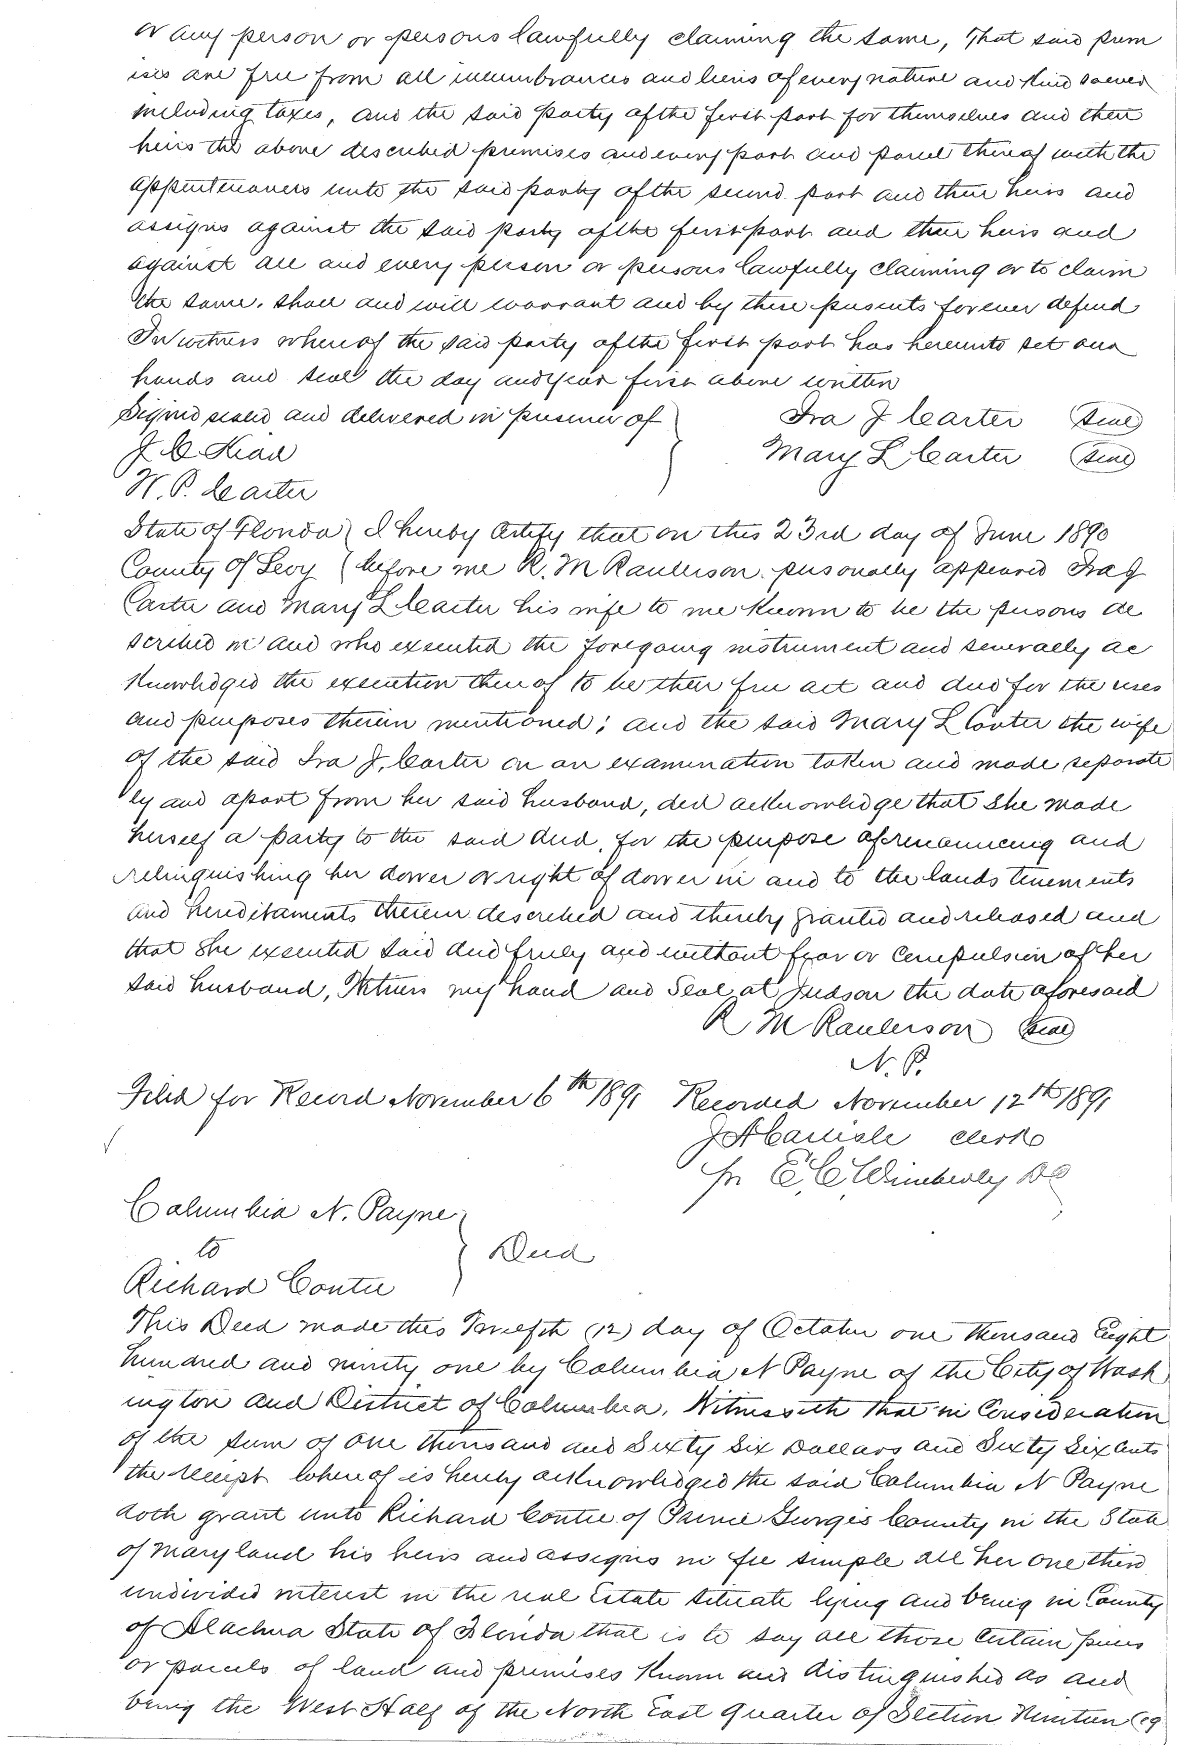 or any person or persons lawfully claiming the same, That said prem
ises are free from all incumbrances and liens of every nature and kind soever
including taxes, and the said party of the first part for themselves and their
heirs the above described premises and every part and parcel thereof with the
appurtenances unto the said party of the second part and their heirs and
assigns against the said party of the first part and their heirs and
against all and every person or persons lawfully claiming or to claim
the same. shall and will warrant and by these presents forever defend
In witness whereof the said party of the first part has hereunto set our
hands and seal the day and year first above written
Signed sealed and delivered in presence of } Ira J Carter (Seal)
J. C. Mary L Carter (Seal)
W. P. Carter
State of Florida } I hereby Certify that on this 23rd day of June 1890
County of Levy } before me R. M Raulerson personally appeared Ira J
Carter and Mary L Carter his wife to me Known to be the persons de
scribed in and who executed the foregoing instrument and severally ac
knowledged the execution thereof to be their free act and deed for the uses
and purposes therein mentioned; and the said Mary L Carter the wife
of the said Ira J. Carter on an examination taken and made separate
ly and apart from her said husband, did acknowledge that She made
herself a party to the said deed. for the purpose of renouncing and
relinquishing her dower or right of dower in and to the lands tenements
and hereditaments therein described and thereby granted and released and
that She executed said deed freely and without fear or Compulsion of her
said husband, Witness my hand and Seal at Judson the date aforesaid
R M Raulerson (Seal)
N. P.
Filed for Record November 6th 1891 Recorded November 12th 1891
J A Carlisle clerk
Pr E. C Wimberly DC
Columbia N. Payne
to } Deed
Richard Contee
This Deed made this Twelfth (12) day of October one thousand Eight
hundred and ninety one by Columbia N Payne of the City of Wash
ington and District of Columbia, Witnesseth that in Consideration
of the sum of One thousand and Sixty Six Dollars and Sixty Six cents
the receipt whereof is hereby acknowledged the said Columbia N Payne
doth grant unto Richard Contee of Prince Georges County in the State
of Maryland his heirs and assigns in fee simple all her one third
undivided interest in the real Estate situate lying and being in County
of Alachua State of Florida that is to say all those Certain pieces
or parcels of land and premises Known and distinguished as and
being the West Half of the North East quarter of Section Nineteen (19